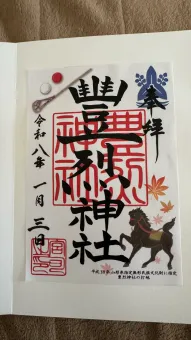 奉拝
豐烈神社
豐烈
神社
令和八年 一月 三日
平成30年山形県指定無形民俗文化財に指定
豊烈神社の打毬